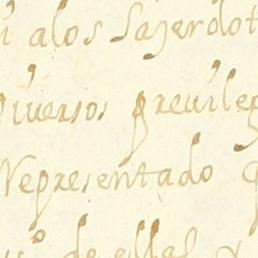 alos Sazerdot
Diuersos preuileg
Representado
de ellas y